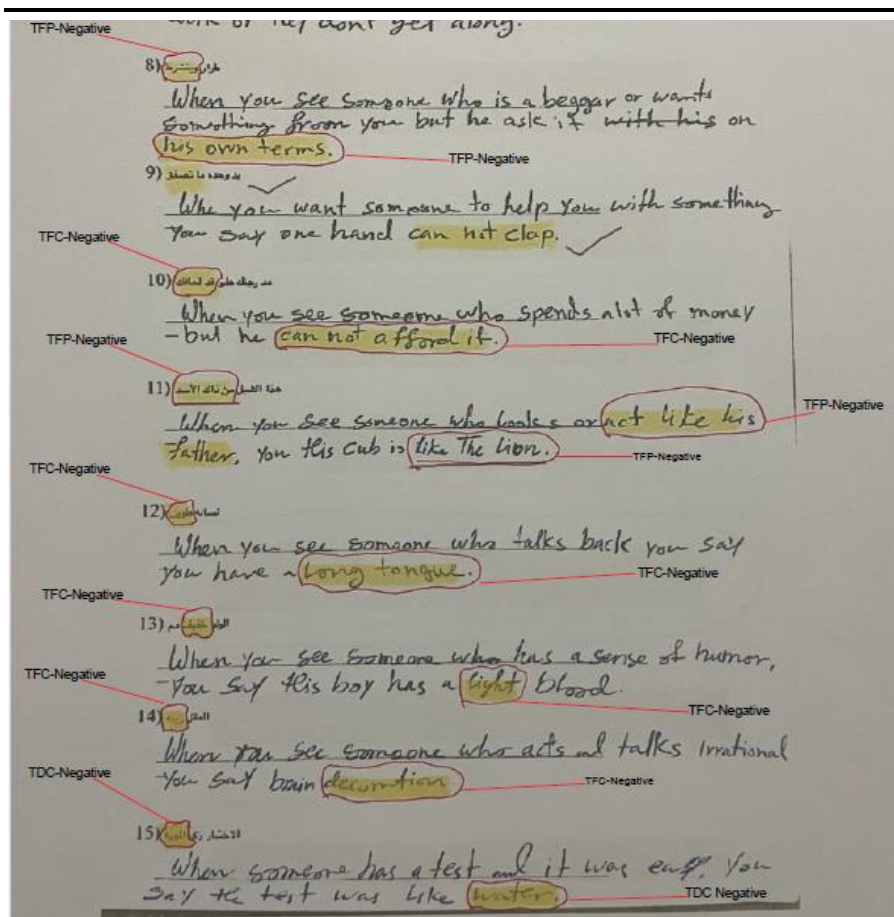 work or they don't get along.
TFP-Negative
8) طرار ويتشرط
When you see someone who is a beggar or wants
something from you but he ask it with his on
his own terms.
TFP-Negative
9) يد وحده ما تصفق
Whe you want someone to help you with something
you say one hand can not clap.
TFC-Negative
10) مد رجلك على قد لحافك
When you see someone who spends alot of money
-but he can not afford it.
TFC-Negative
TFP-Negative
11) هذا الشبل من ذاك الاسد
When you see someone who looks or act like his
father, you this cub is like The Lion.
TFP-Negative
TFP-Negative
TFC-Negative
12) لسانه طويل
When you see someone who talks back you say
you have a long tongue.
TFC-Negative
TFC-Negative
13) الولد خفيف دم
When you see someone who has a sense of humor,
-you say this boy has a light blood.
TFC-Negative
TFC-Negative
14) العقل زينة
When you see someone who acts and talks irrational
-you say brain decoration.
TFC-Negative
TDC-Negative
15) الاختبار زي الموية
When someone has a test and it was easy, you
say the test was like water.
TDC Negative